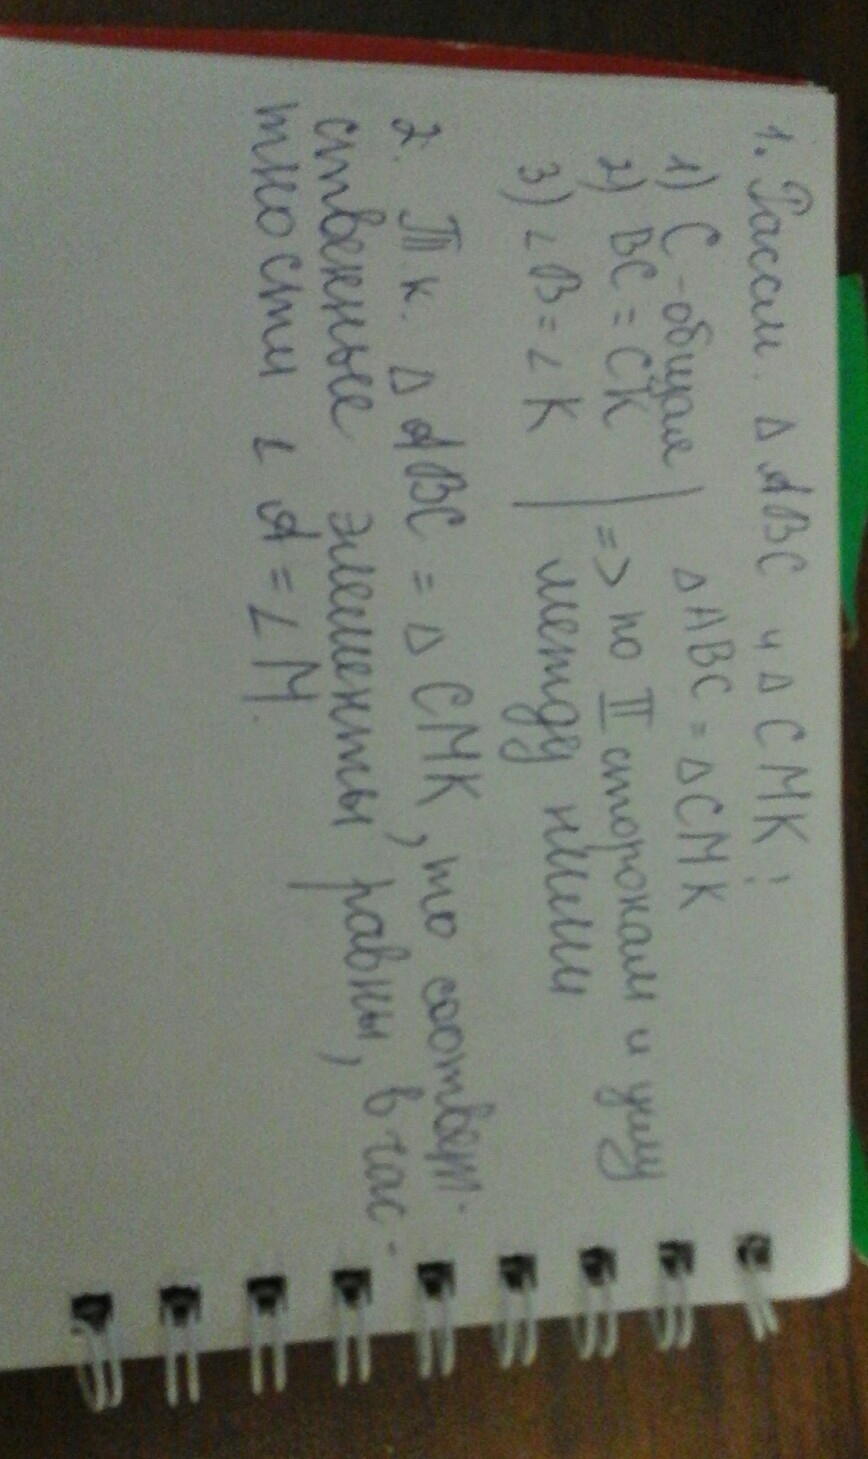 1. Рассм. Δ ABC и Δ CMK:
1) C - общая | Δ ABC = Δ CMK
2) BC = CK | => по II сторонам и углу
3) ∠B = ∠K | между ними
2. Т к. Δ ABC = Δ CMK, то соответ-
ственные элементы равны, в час-
тности ∠ A = ∠ M.